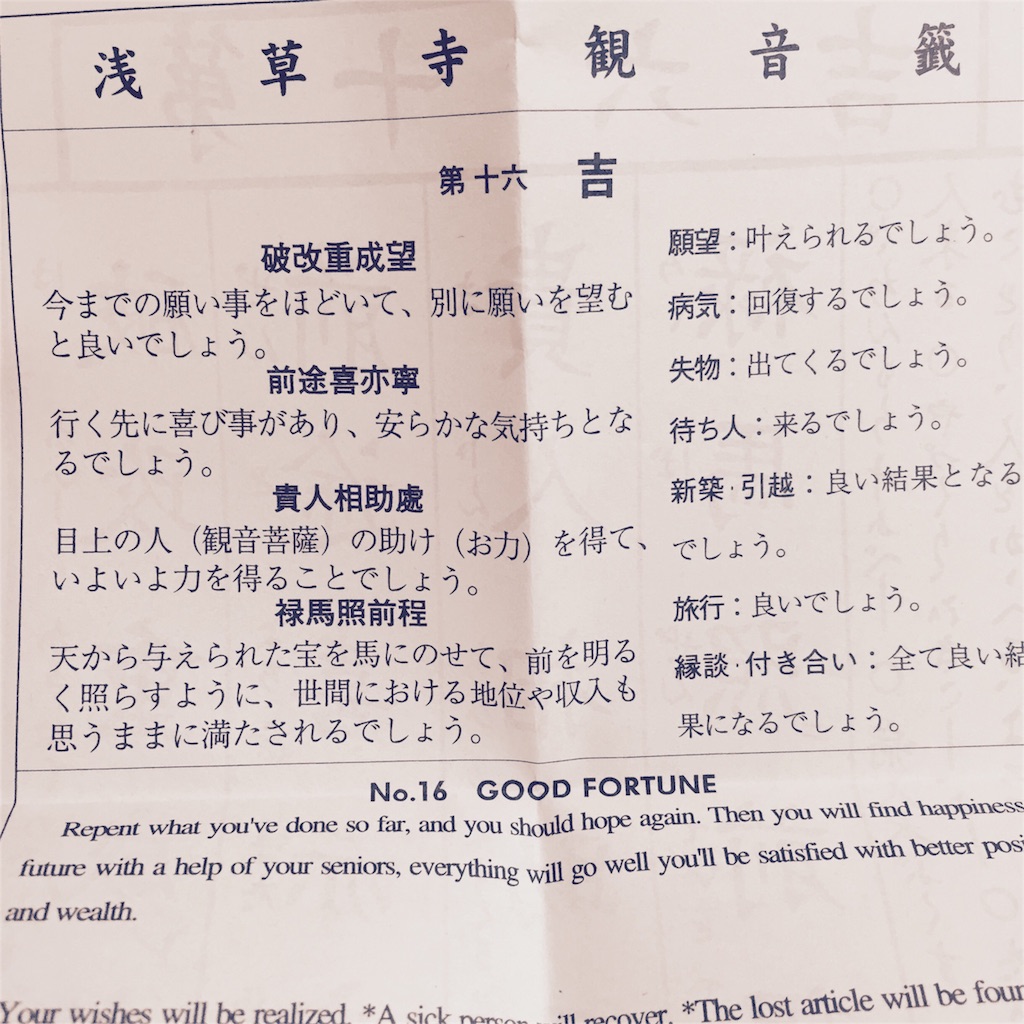 浅草寺観音籤
第十六 吉
破改重成望
今までの願い事をほどいて、別に願いを望む
と良いでしょう。
前途喜亦寧
行く先に喜び事があり、安らかな気持ちとな
るでしょう。
貴人相助處
目上の人（観音菩薩）の助け（お力）を得て、
いよいよ力を得ることでしょう。
禄馬照前程
天から与えられた宝を馬にのせて、前を明る
く照らすように、世間における地位や収入も
思うままに満たされるでしょう。
願望：叶えられるでしょう。
病気：回復するでしょう。
失物：出てくるでしょう。
待ち人：来るでしょう。
新築・引越：良い結果となる
でしょう。
旅行：良いでしょう。
縁談・付き合い：全て良い結
果になるでしょう。
No.16 GOOD FORTUNE
Repent what you've done so far, and you should hope again. Then you will find happiness
future with a help of your seniors, everything will go well you'll be satisfied with better posi
and wealth.
Your wishes will be realized. *A sick person will recover. *The lost article will be foun